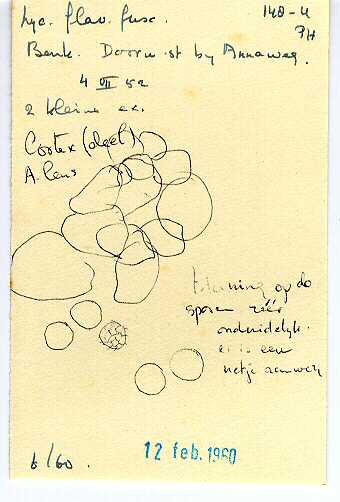 Lyc. flav. fusc. 148-4
PH
Benk. Doorn st by Annaweg.
4 VII 52
2 kleine ex.
Cortex (deel)
A. lens
tekening op de
sporen zéér
onduidelyk.
er is een
netje aanwezig
6/60.
12 feb. 1960